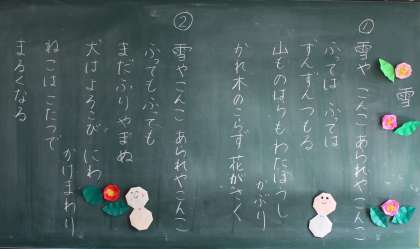 雪
①
雪や こんこ あられや こんこ
ふっては ふっては
ずんずんつもる
山ものはらもわたぼうし
かぶり
かれ木のこらず 花がさく
②
雪や こんこ あられやこんこ
ふっても ふっても
まだふり やまぬ
犬はよろこび にわ
かけまわり
ねこはこたつで
まるくなる